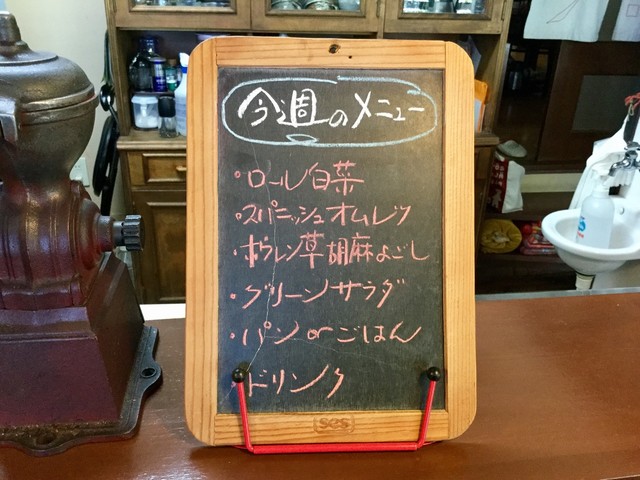 今週のメニュー
・ロール白菜
・スパニッシュオムレツ
・ホウレン草胡麻よごし
・グリーンサラダ
・パン or ごはん
・ドリンク
SCS